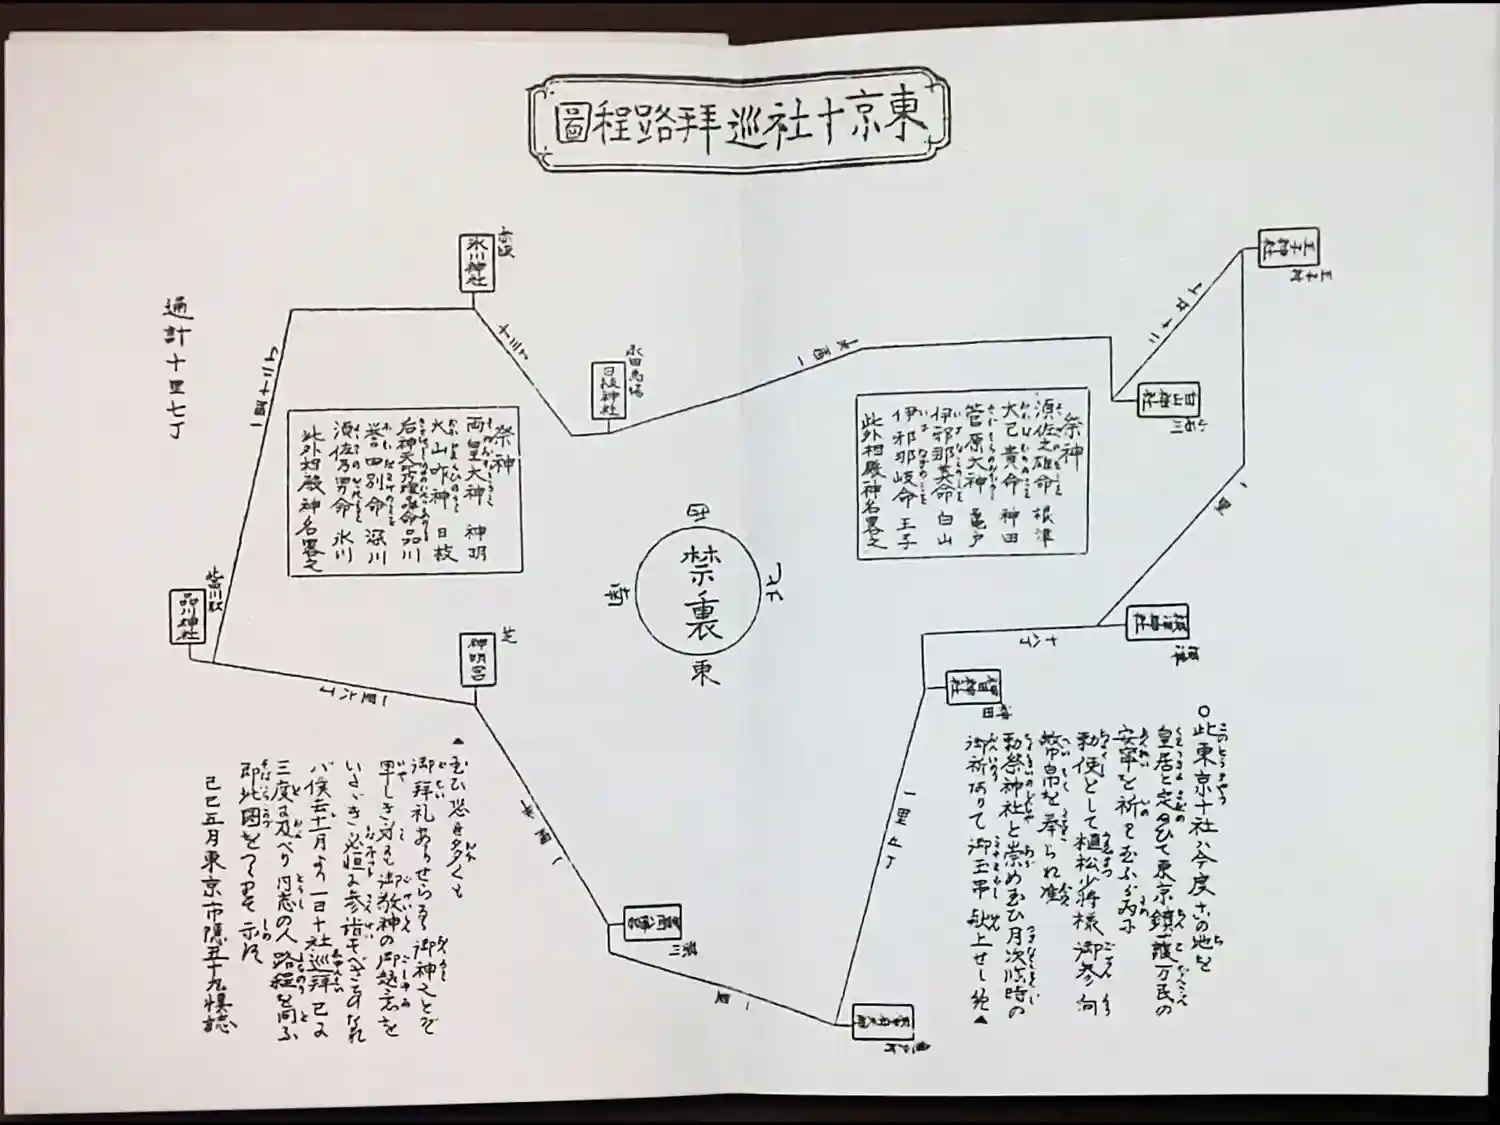 東京十社巡拜路程圖
王子神社
王子村
二十七丁
白山神社
一里
根津神社
根津
十八丁
神田神社
神田
一里九丁
一里
一里半
神明宮
芝
一里六丁
品川神社
品川駅
一里十二丁
氷川神社
赤坂
十三丁
日枝神社
永田馬場
一里
通計十里七丁
禁裏
西
北
南
東
祭神
須佐之雄命 根津
大己貴命 神田
菅原大神 亀戸
伊邪那美命 白山
伊邪那岐命 王子
此外相殿神名畧之
祭神
両皇大神 神明
大山咋神 日枝
命 品川
誉田別命 深川
須佐乃男命 氷川
此外相殿神名畧之
〇此東京十社ハ今度この地を
皇居と定め玉ひて東京鎮護万民の
安寧を祈らせ玉ふ
勅使として植松少将様御参向
幣帛を奉られ准
勅祭神社と崇め玉ひ月次臨時の
御祈ありて御玉串献上せし
玉ひ恐多くも
御拜礼あらせらるる御神
御敬神の御趣意を
必恒に参詣すべきことなれ
バ僕去十一月より一日十社巡拜已に
三度に及べり同志の人路程を問ふ
即此図をつくりて示す
己巳五月東京市隠五十九慎誌